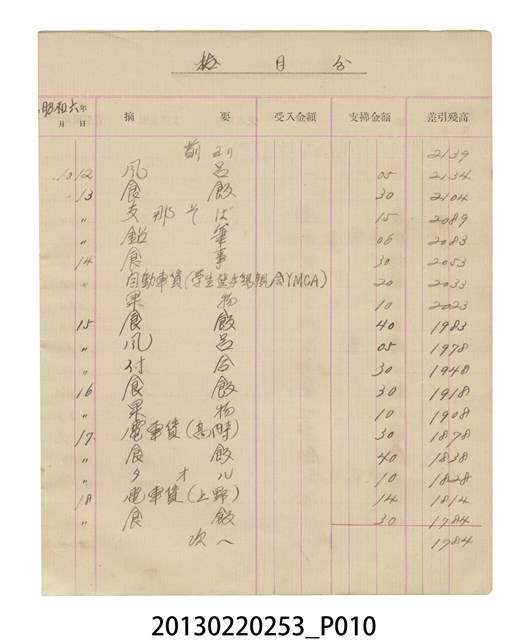 拾月分
昭和六年
月 日 摘要 受入金額 支拂金額 差引残高
前ヨリ 2139
10 12 風呂 05 2134
〃 13 食飯 30 2104
〃 支那そば 15 2089
〃 鉛筆 06 2083
14 食事 30 2053
〃 自動車賃(学生 会YMCA) 20 2033
果物 10 2023
15 食飯 40 1983
〃 風呂 05 1978
〃 付合 30 1948
16 食飯 30 1918
〃 果物 10 1908
17 電車賃(高 ) 30 1878
〃 食飯 40 1838
〃 タオル 10 1828
18 電車賃(上野) 14 1814
〃 食飯 30 1784
次へ 1784
20130220253_P010